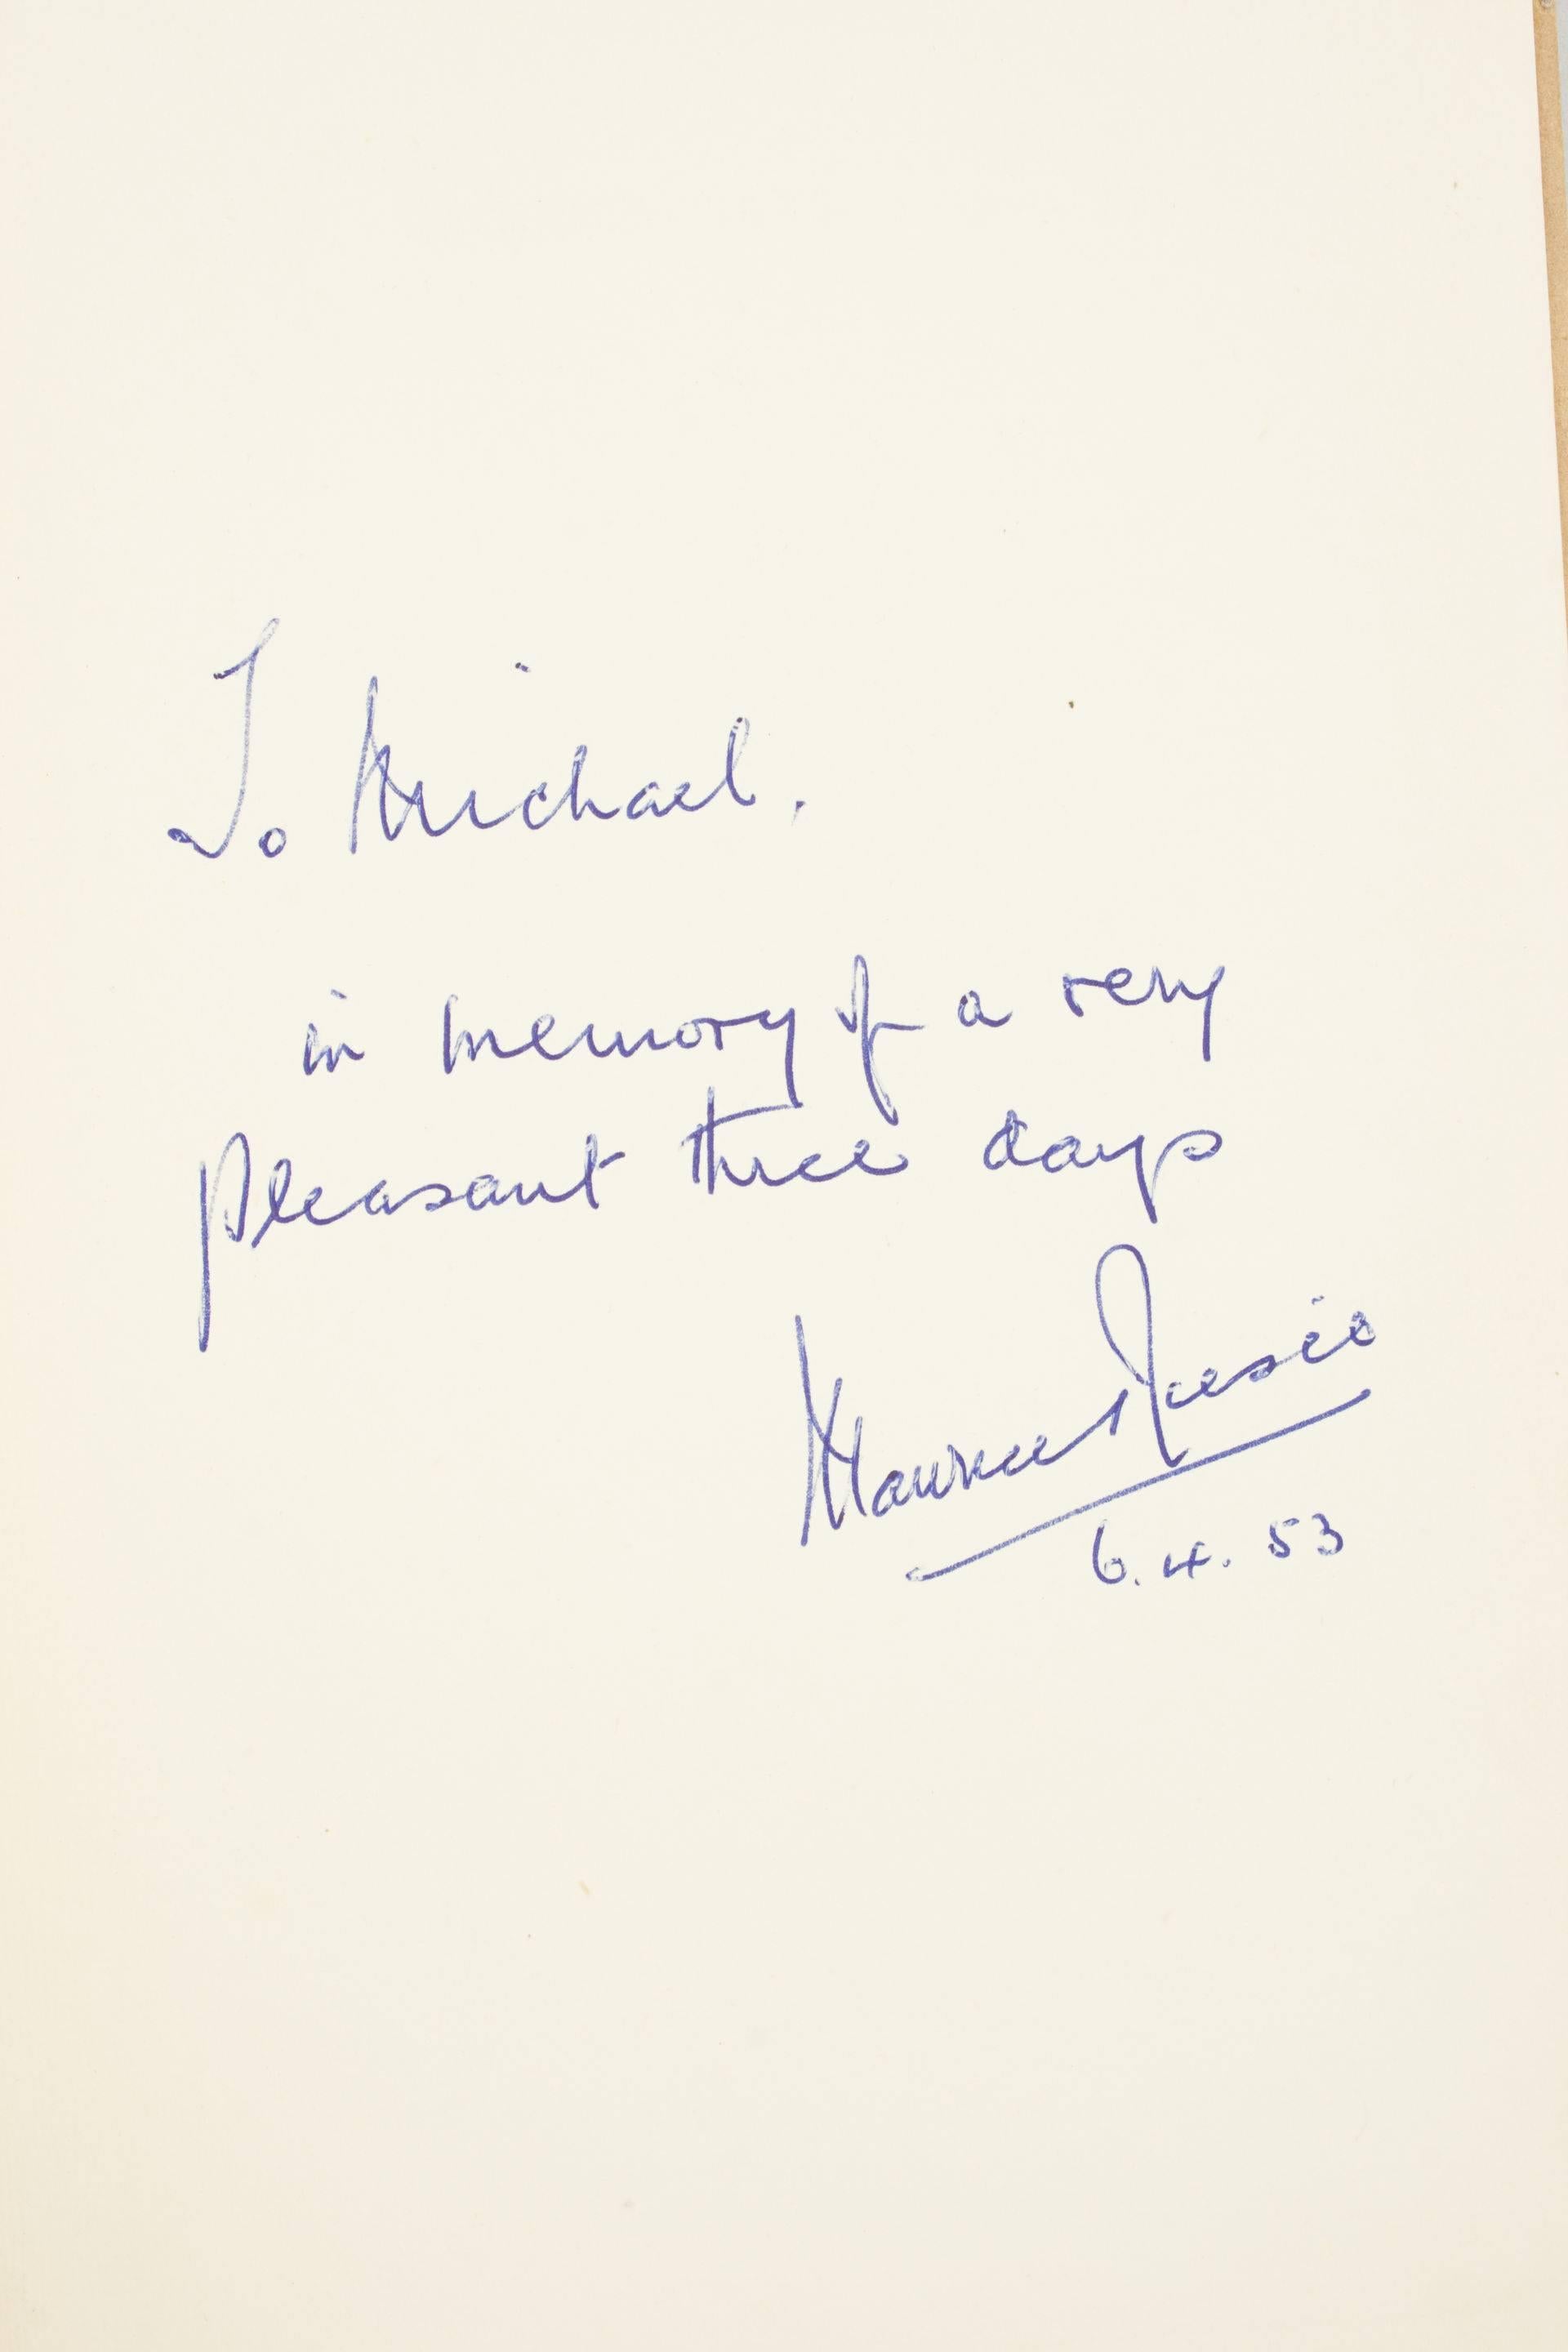 To Michael,
in memory of a very
pleasant three days
Maurice
6.4.53